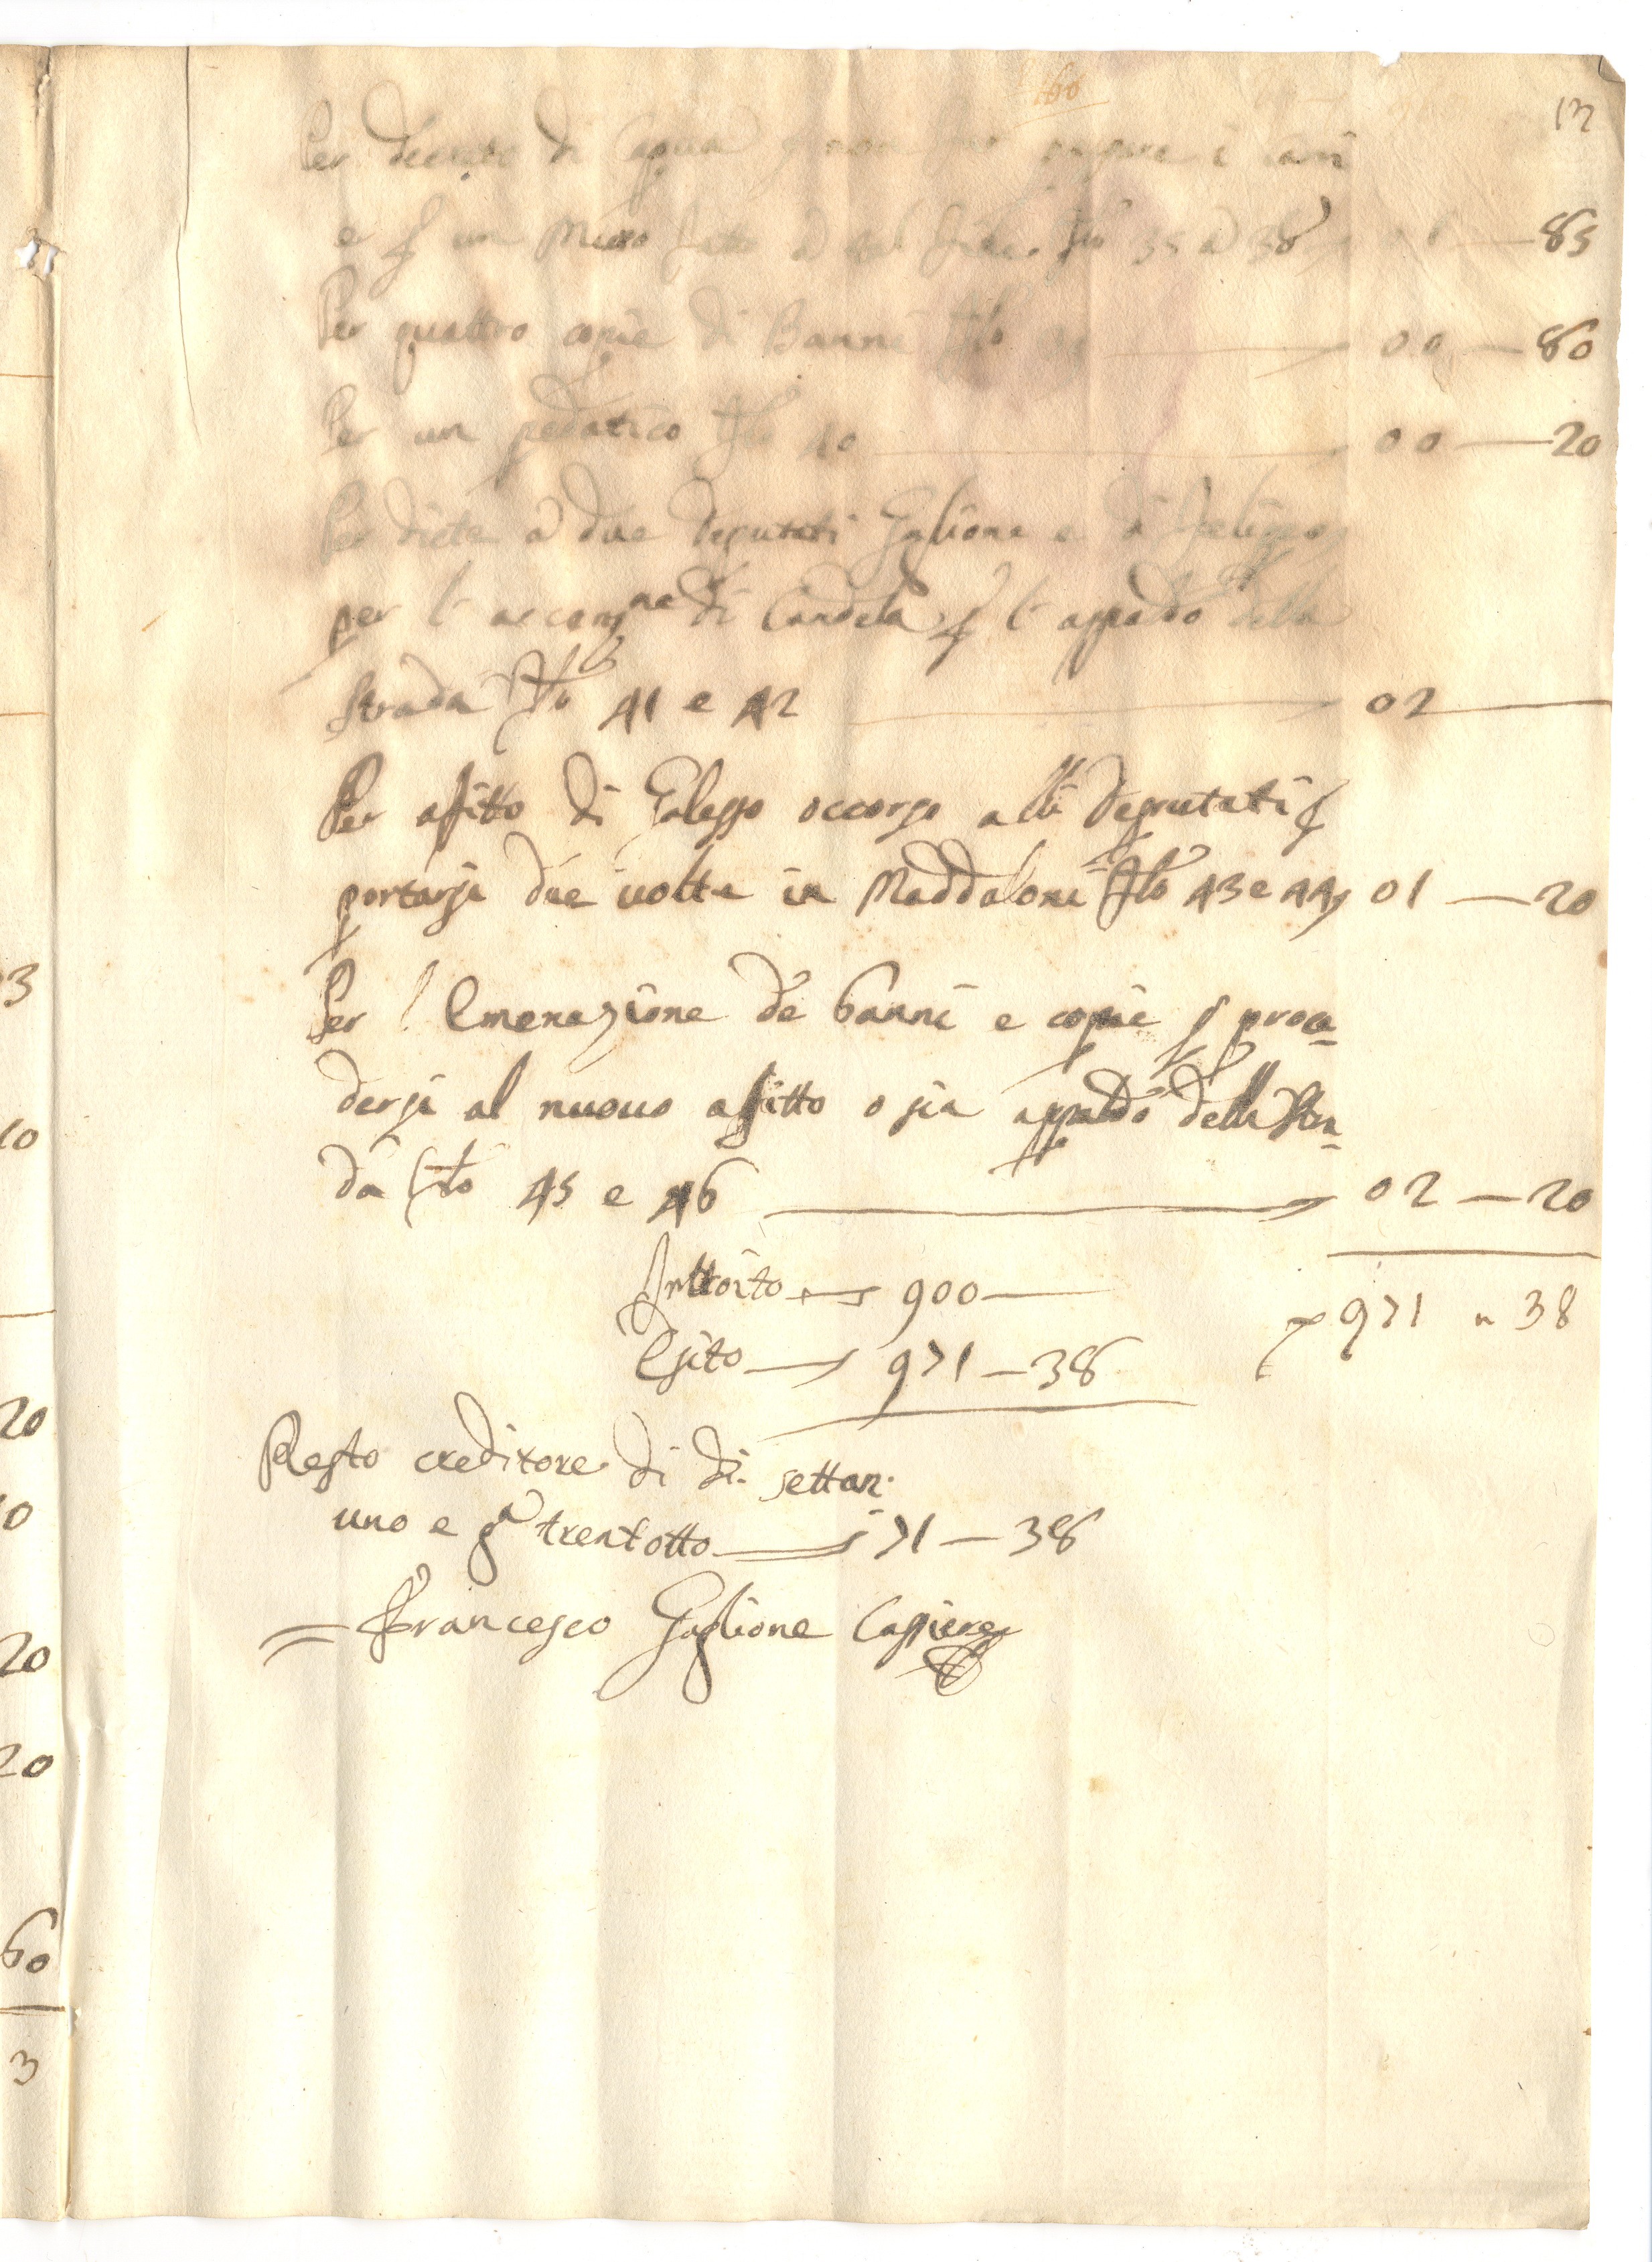 13
Per di Capua
e un Muro fatto 38 85
Per quattro copie di Banni 00 — 80
Per un pedatico flo 40 00 — 20
Per diete a due Deputati Gaglione e
per l' accenⁿᵉ di Candela ꝑ l' appaldo della
strada flo 41 e 42 02
Per affitto di Galesso occorso alli Deputati ꝑ
portarsi due volte in Maddaloni flo 43 e 44 01 — 20
Per l' Emenazione de banni e copie ꝑ proce
dersi al nuouo affitto o sia appaldo della stra
da flo 45 e 46 02 — 20
Introito 900
971 " 38
Esito 971 — 38
Resto creditore di di. settan.
uno e gᵃ trentotto 71 — 38
Francesco Gaglione Cassiere
3
10
20
0
20
20
60
3